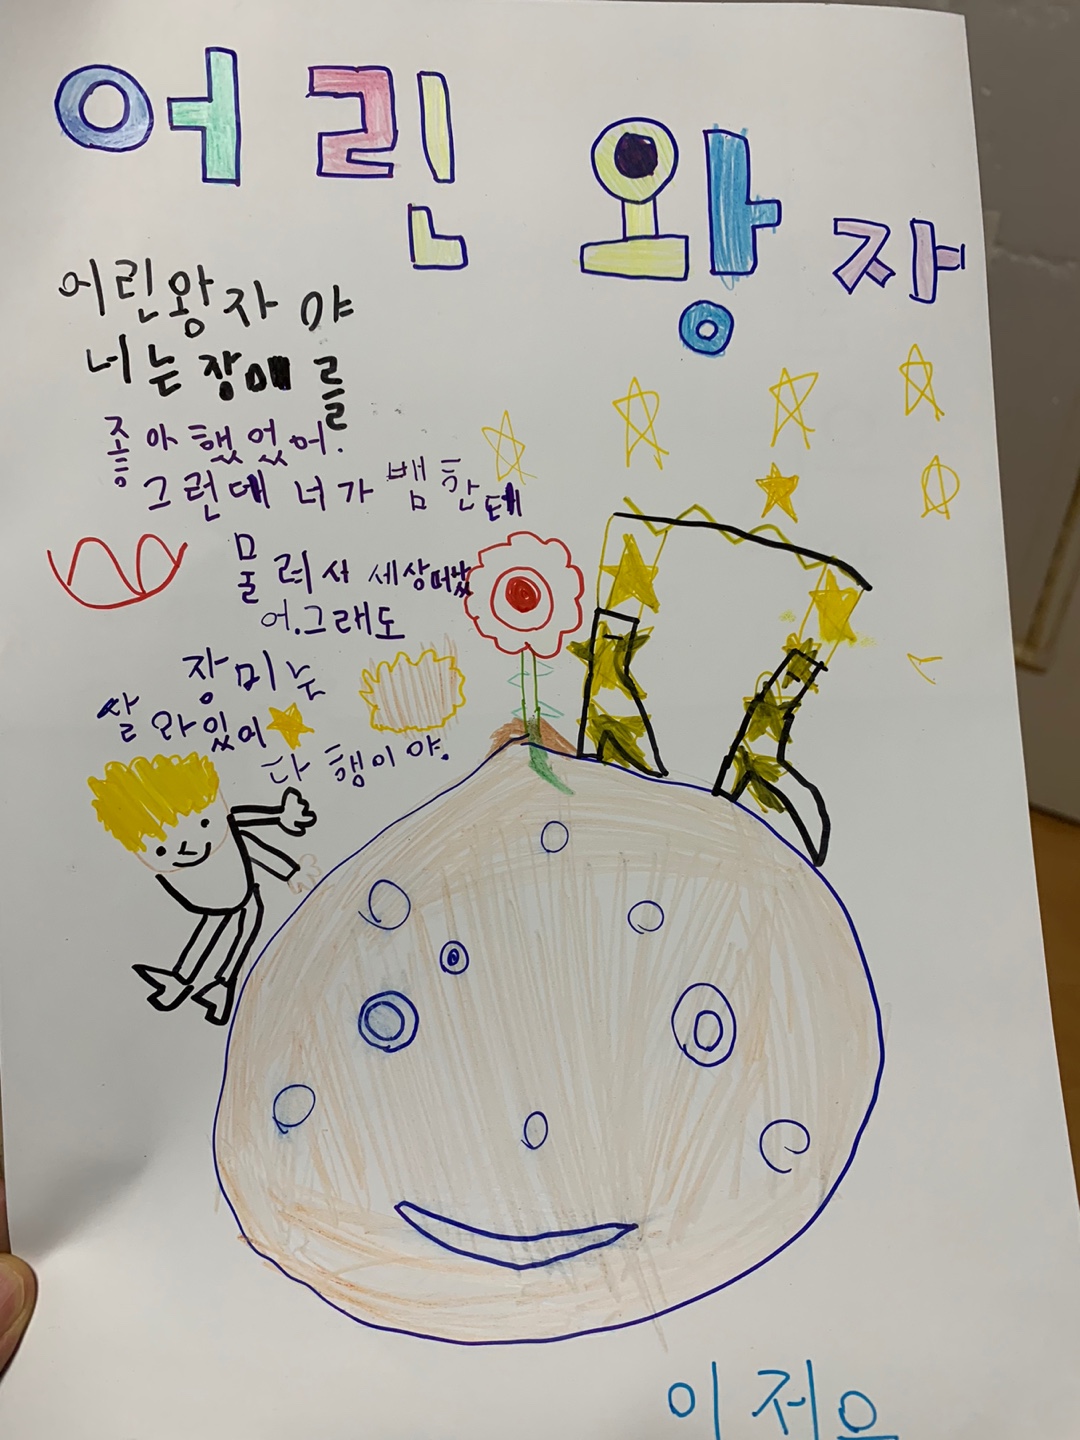 어린 왕자
어린왕자야
너는 장미를
좋아했었어.
그런데 너가 뱀한테
물려서 세상떠났
어.그래도
장미는
살아있어
다행이야.
이